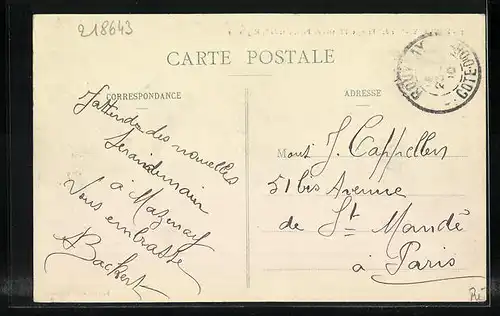 218643
CARTE POSTALE
CORRESPONDANCE
ADRESSE
J'attends des nouvelles
à Mazenay
Vous embrasse
Backert
M
J. Cappellen
51 bis Avenue
de St Mandé
à Paris
COTE-D'OR